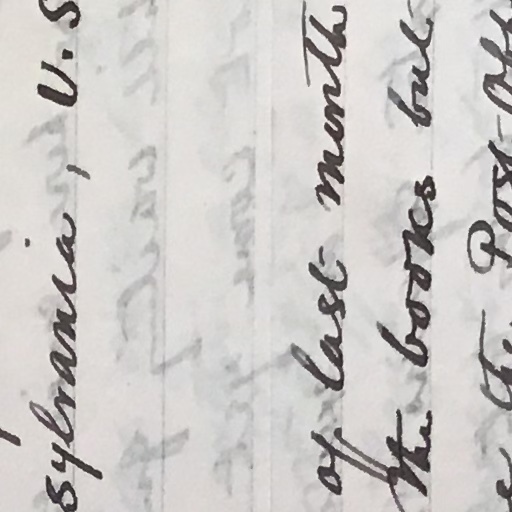 sylvania, U.S
of last month
the books but
the Post-Off